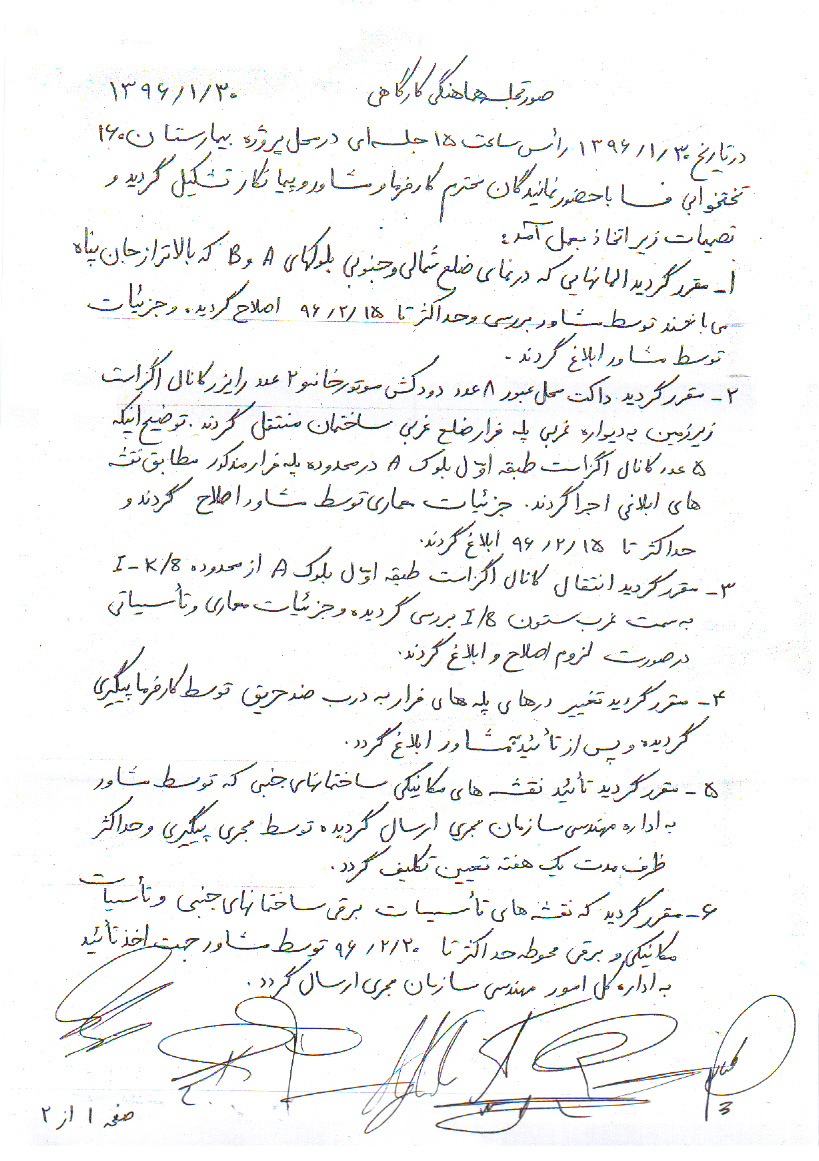 صورتجلسه هماهنگی کارگاهی ۱۳۹۶/۱/۳۰
در تاریخ ۱۳۹۶/۱/۳۰ رأس ساعت ۱۵ جلسه‌ای در محل پروژه بیمارستان ۱۶۰
تختخوابی فسا با حضور نمایندگان محترم کارفرما و مشاور و پیمانکار تشکیل گردید و
تصمیمات زیر اتخاذ بعمل آمد:
۱- مقرر گردید المانهایی که در نمای ضلع شمالی و جنوبی بلوکهای A و B که بالاتر از جان پناه
می باشند توسط مشاور بررسی و حداکثر تا ۹۶/۲/۱۵ اصلاح گردیده و جزئیات
توسط مشاور ابلاغ گردند.
۲- مقرر گردید داکت محل عبور ۸ عدد دودکش موتورخانه و ۲ عدد رایزر کانال اگزاست
زیرزمین به دیواره غربی پله فرار ضلع غربی ساختمان منتقل گردند. توضیح اینکه
۵ عدد کانال اگزاست طبقه اول بلوک A در محدوده پله فرار مذکور مطابق نقشه
های ابلاغی اجرا گردند. جزئیات معماری توسط مشاور اصلاح گردند و
حداکثر تا ۹۶/۲/۱۵ ابلاغ گردند.
۳- مقرر گردید انتقال کانال اگزاست طبقه اول بلوک A از محدوده I-K/8
به سمت غرب ستون I/8 بررسی گردیده و جزئیات معماری و تأسیساتی
در صورت لزوم اصلاح و ابلاغ گردند.
۴- مقرر گردید تغییر درهای پله های فرار به درب ضد حریق توسط کارفرما پیگیری
گردیده و پس از تأئید مشاور ابلاغ گردد.
۵- مقرر گردید تأئید نقشه های مکانیکی ساختمانهای جنبی که توسط مشاور
به اداره مهندسی سازمان مجری ارسال گردیده توسط مجری پیگیری و حداکثر
ظرف مدت یک هفته تعیین تکلیف گردد.
۶- مقرر گردید که نقشه های تأسیسات برقی ساختمانهای جنبی و تأسیسات
مکانیکی و برقی محوطه حداکثر تا ۹۶/۲/۲۰ توسط مشاور جهت اخذ تأئید
به اداره کل امور مهندسی سازمان مجری ارسال گردد.
صفحه ۱ از ۲